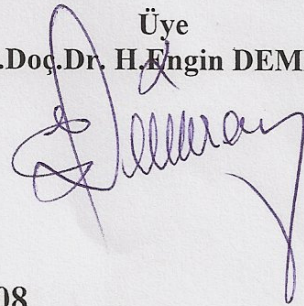 Üye
.Doç.Dr. H.Engin DEM
08